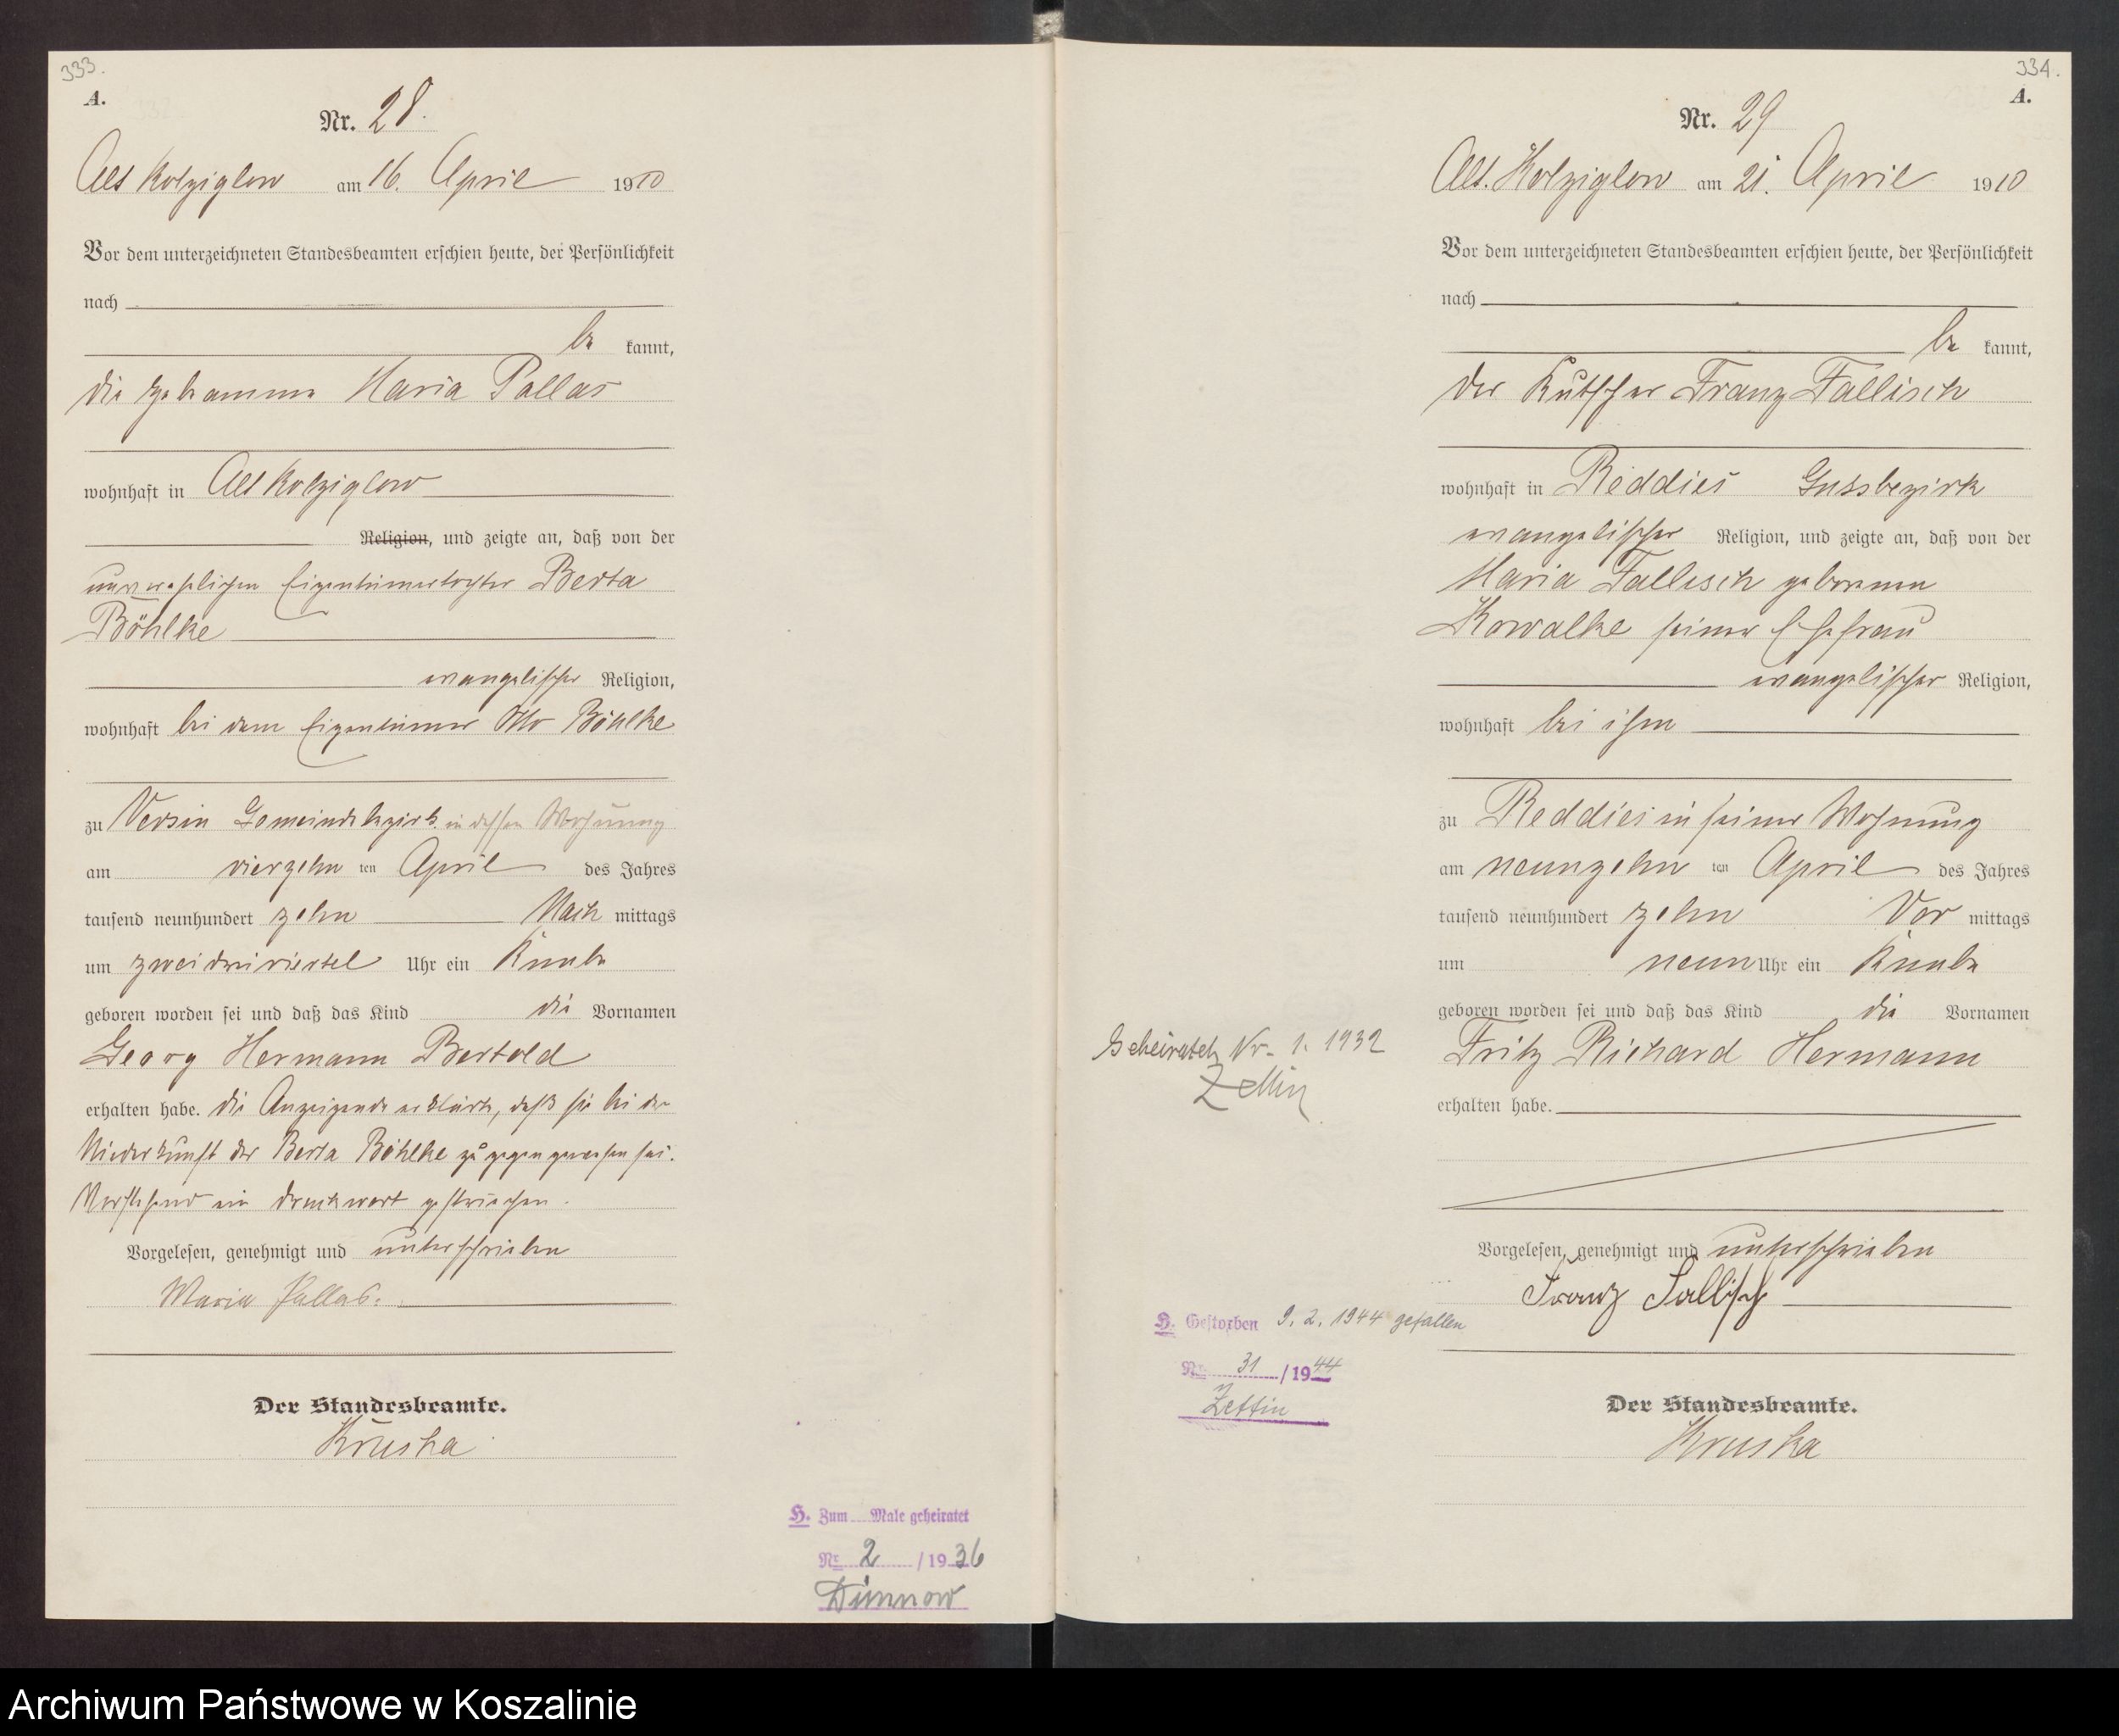 333.
A.
Nr. 28.
Alt Kolziglow am 16. April 1910
Vor dem unterzeichneten Standesbeamten erschien heute, der Persönlichkeit
nach
be kannt,
die Hebamme Maria Pallas
wohnhaft in Alt Kolziglow
Religion, und zeigte an, daß von der
unverehelichten Eigentümertochter Berta
Böhlke
evangelischer Religion,
wohnhaft bei dem Eigentümer Otto Böhlke
zu Versin Gemeindebezirk in dessen Wohnung
am vierzehn ten April des Jahres
tausend neunhundert zehn Nach mittags
um zweidreiviertel Uhr ein Knabe
geboren worden sei und daß das Kind die Vornamen
Georg Hermann Bertold
erhalten habe. Die Anzeigende erklärte, daß sie bei der
Niederkunft der Berta Böhlke zugegen gewesen sei.
Vorstehend ein Druckwort gestrichen.
Vorgelesen, genehmigt und unterschrieben
Maria Pallas.
Der Standesbeamte.
Kruska
H. Zum Male geheiratet
Nr. 2 / 1936
Dünnow
334.
A.
Nr. 29
Alt. Kolziglow am 21. April 1910
Vor dem unterzeichneten Standesbeamten erschien heute, der Persönlichkeit
nach
be kannt,
der Kutscher Franz Fallisch
wohnhaft in Reddies Gutsbezirk
evangelischer Religion, und zeigte an, daß von der
Maria Fallisch geborenen
Kowalke seiner Ehefrau
evangelischer Religion,
wohnhaft bei ihm
zu Reddies in seiner Wohnung
am neunzehn ten April des Jahres
tausend neunhundert zehn Vor mittags
um neun Uhr ein Knabe
geboren worden sei und daß das Kind die Vornamen
Fritz Richard Hermann
erhalten habe.
Vorgelesen, genehmigt und unterschrieben
Franz Fallisch
Der Standesbeamte.
Kruska
Geheiratet Nr. 1. 1932
Zettin
H. Gestorben 9. 2. 1944 gefallen
Nr. 31 / 1944
Zettin
Archiwum Państwowe w Koszalinie